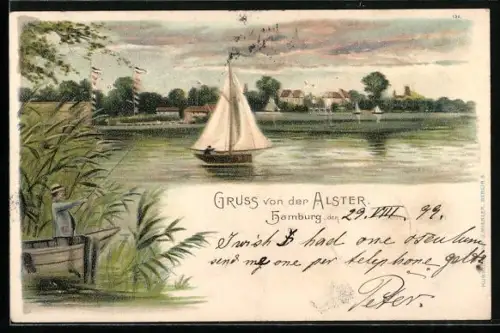 GRUSS VON DER ALSTER.
Hamburg, den 29. VIII. 99.
I wish I had one
send me one per telephone
Peter.